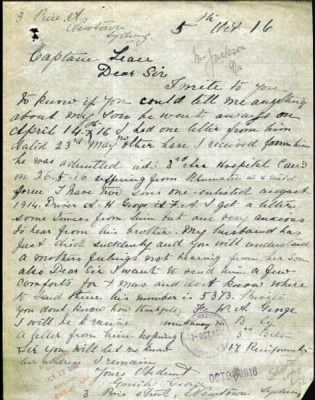 3 Rose St
Newtown
Sydney
5th Oct 16
Mr Jackson
Captain Lean
Dear Sir
I write to you
to know if you could tell me anything
about my Son he went away on
April 14th 16 I had one letter from him
dated 23rd May then I received from
he was admitted 3rd Hospital
on 26.5.16 suffering from Rheumatism
I have two sons one enlisted august
1914. Driver A. H. George F.A. I get a letter
some times from him but am very anxious
to hear from his brother. My husband has
just died suddenly and you will understand
a mothers feelings not hearing from her Son
also Dear Sir I want to send him a few
Comforts for Xmas and dont know where
to send them his number is 5373. Private
you dont know how thankful W. A. George
I will be to receive
a letter from him hoping
Sir you will let me know Reinforcements
I remain OCT 1916
Yours Obedient
Emily George
3 Rose Street, Newtown Sydney